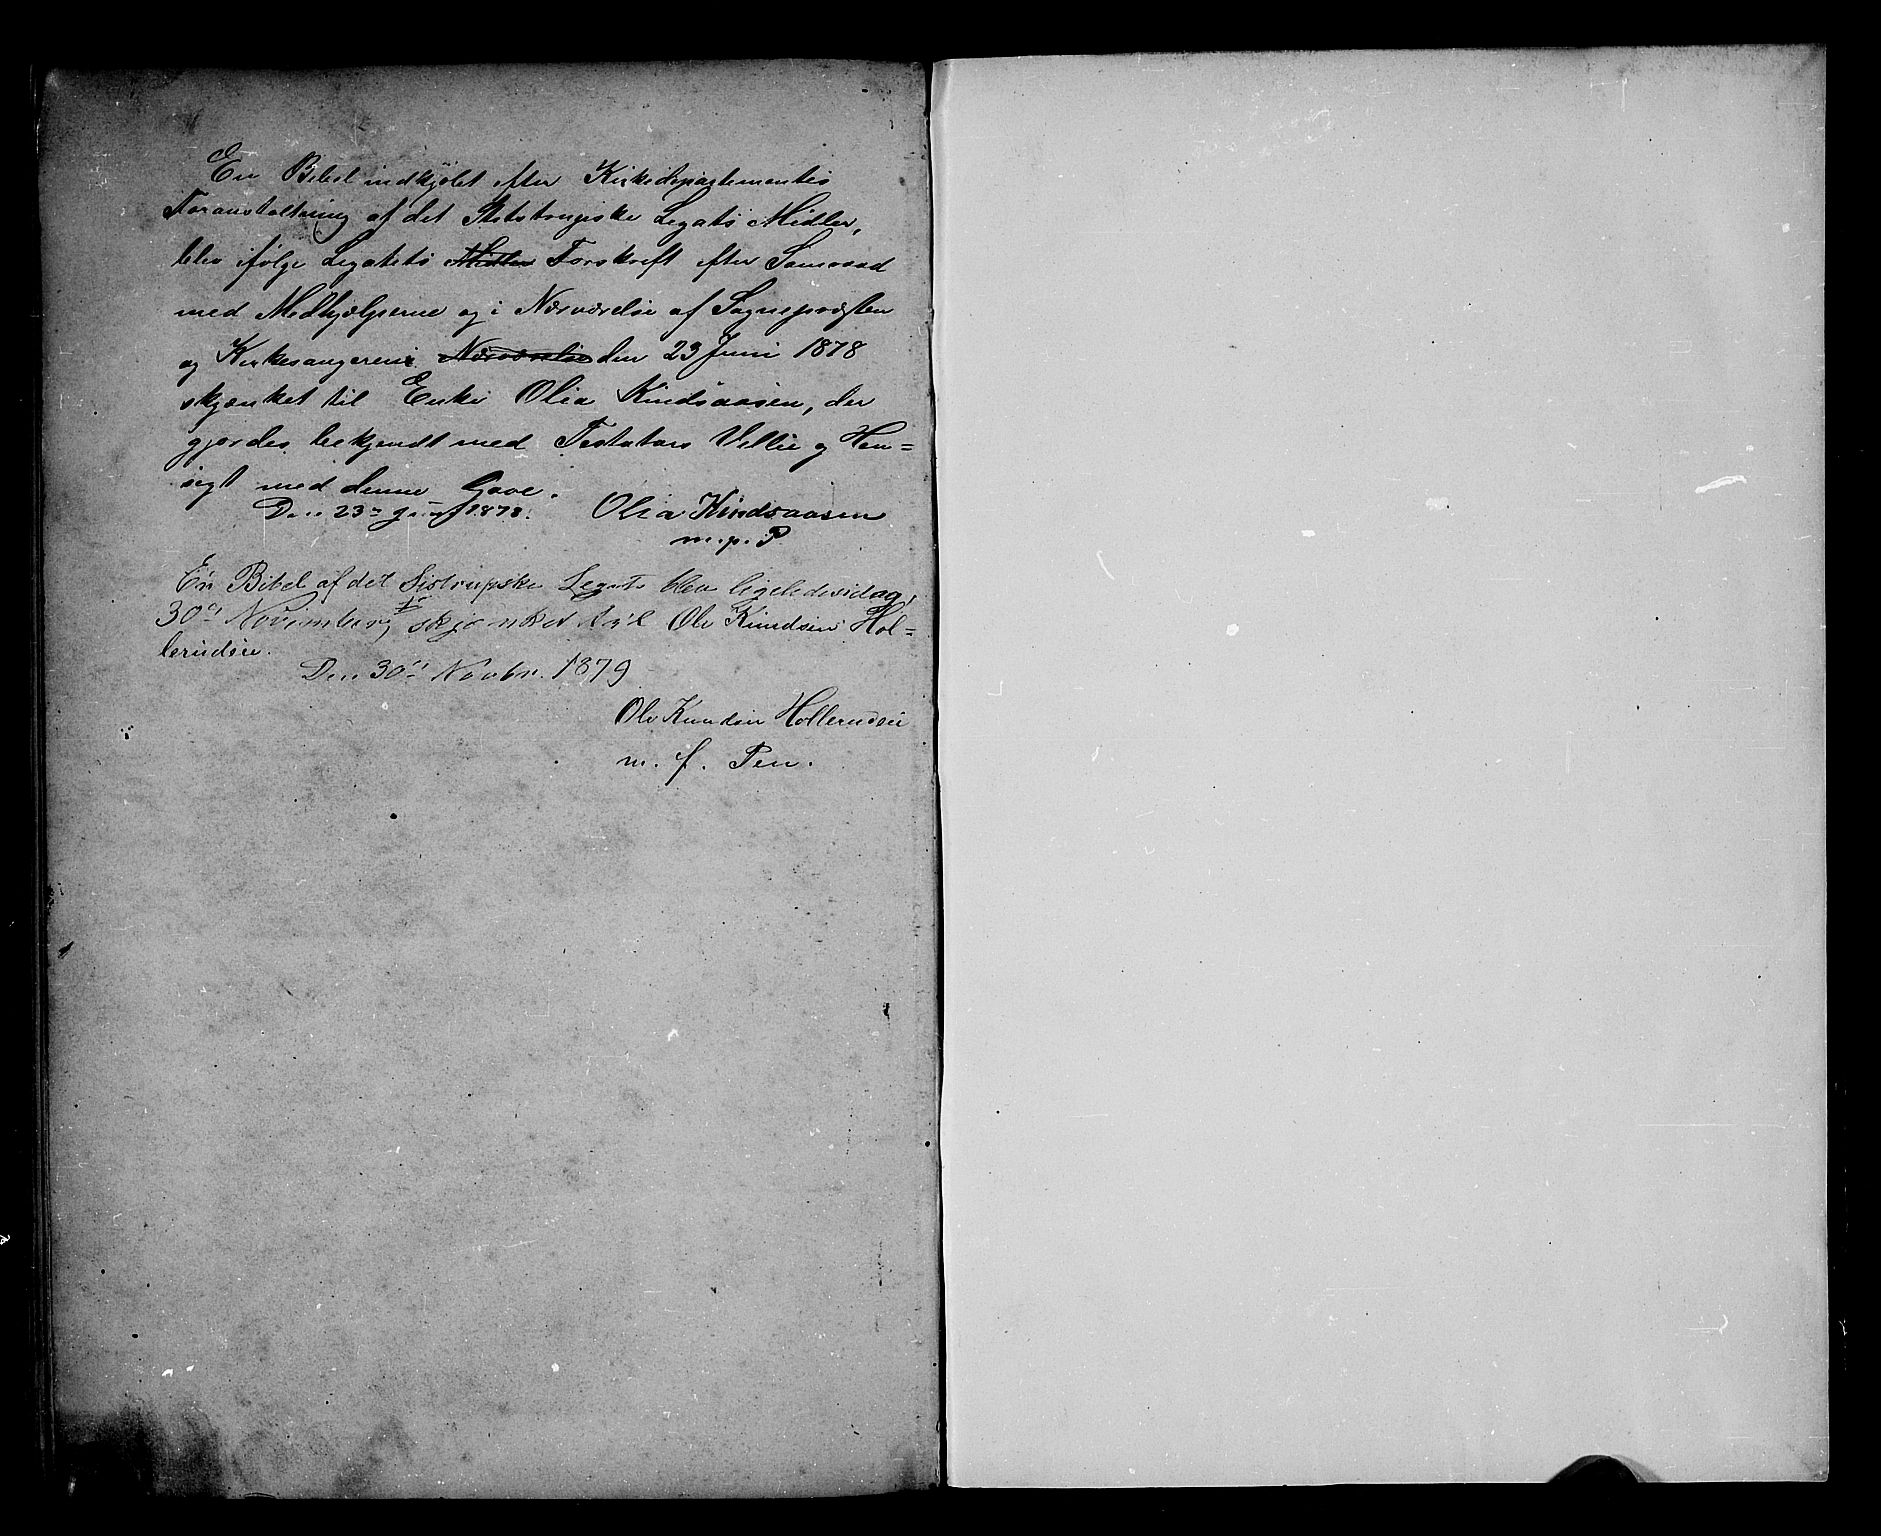 En Bibel indkjøbt efter Kirkedepartementets
Foranstaltning af det Stistrupske Legats Midler,
blev ifølge Legatets Midler Forskrift efter Samraad
med Medhjælperne og i Nærværelse af Sognepræsten
og Kirkesangeren Nærværelse den 23 Juni 1878
skjænket til Enke Olia Kindsaasen, der
gjordes bekjendt med Testators Villie og Hen=
sigt med denne Gave.
Den 23de Juni 1878. Olia Kindsaasen
m. p. P
En Bibel af det Sistrupske Legat blev ligeledes idag,
30te November, skjænket til Ole Knudsen Hol=
lerudeie.
Den 30te Novbr. 1879
Ole Knudsen Hollerudeie
m. f. Pen.